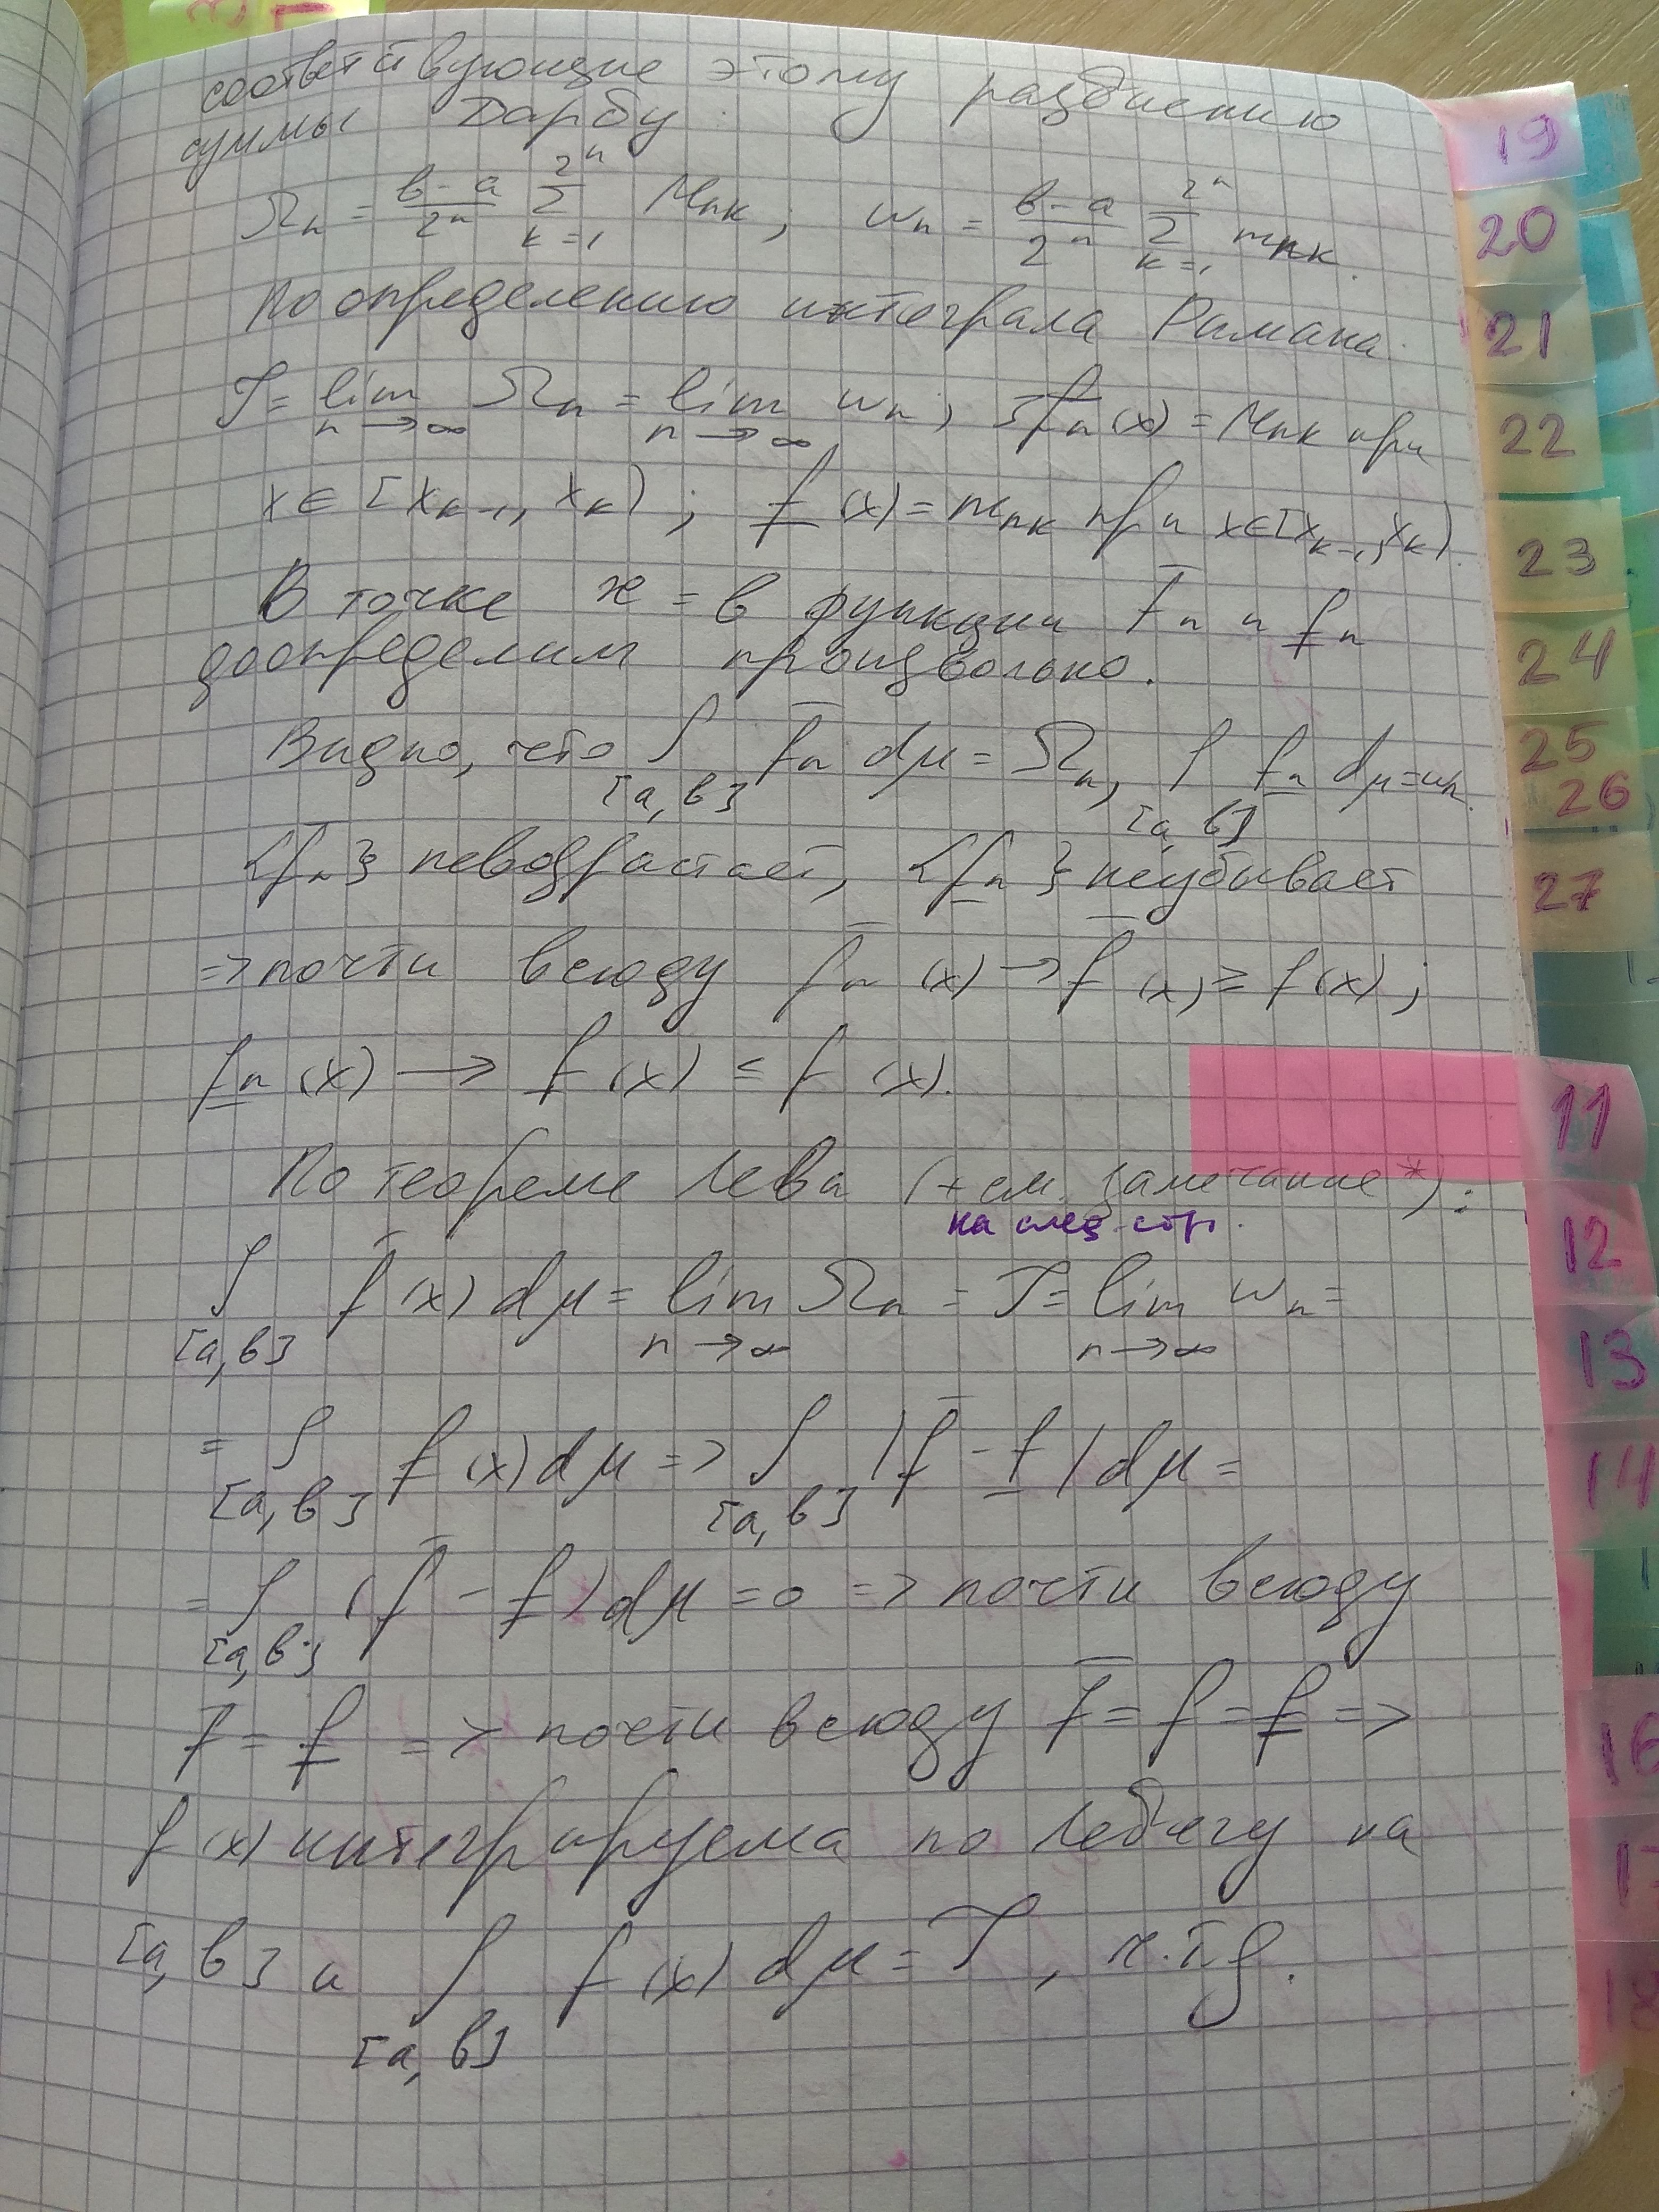 соответствующие этому разбиению
суммы Дарбу:
Ωₙ = (b-a)/2ⁿ ∑_{k=1}^{2ⁿ} Mₙₖ; ωₙ = (b-a)/2ⁿ ∑_{k=1}^{2ⁿ} mₙₖ.
По определению интеграла Римана:
J = lim_{n→∞} Ωₙ = lim_{n→∞} ωₙ, f̅ₙ(x) = Mₙₖ при
x∈[xₖ₋₁, xₖ); f̲(x) = mₙₖ при x∈[xₖ₋₁, xₖ).
В точке x = b функции f̅ₙ и f̲ₙ
доопределим произвольно.
Видно, что ∫_{[a,b]} f̅ₙ dμ = Ωₙ, ∫_{[a,b]} f̲ₙ dμ = ωₙ.
{f̅ₙ} невозрастает, {f̲ₙ} неубывает
=> почти всюду f̅ₙ(x) → f̅(x) ≥ f(x);
f̲ₙ(x) → f̲(x) ≤ f(x).
По теореме Леви (+ см. замечание*):
на след. стр.
∫_{[a,b]} f̅(x) dμ = lim_{n→∞} Ωₙ = J = lim_{n→∞} ωₙ =
= ∫_{[a,b]} f̲(x) dμ => ∫_{[a,b]} |f̅ - f̲| dμ =
= ∫_{[a,b]} (f̅ - f̲) dμ = 0 => почти всюду
f̅ = f̲ => почти всюду f̅ = f = f̲ =>
f(x) интегрируема по Лебегу на
[a,b] и ∫_{[a,b]} f(x) dμ = J, ч.т.д.
19
20
21
22
23
24
25
26
27
11
12
13
14
16
17
18